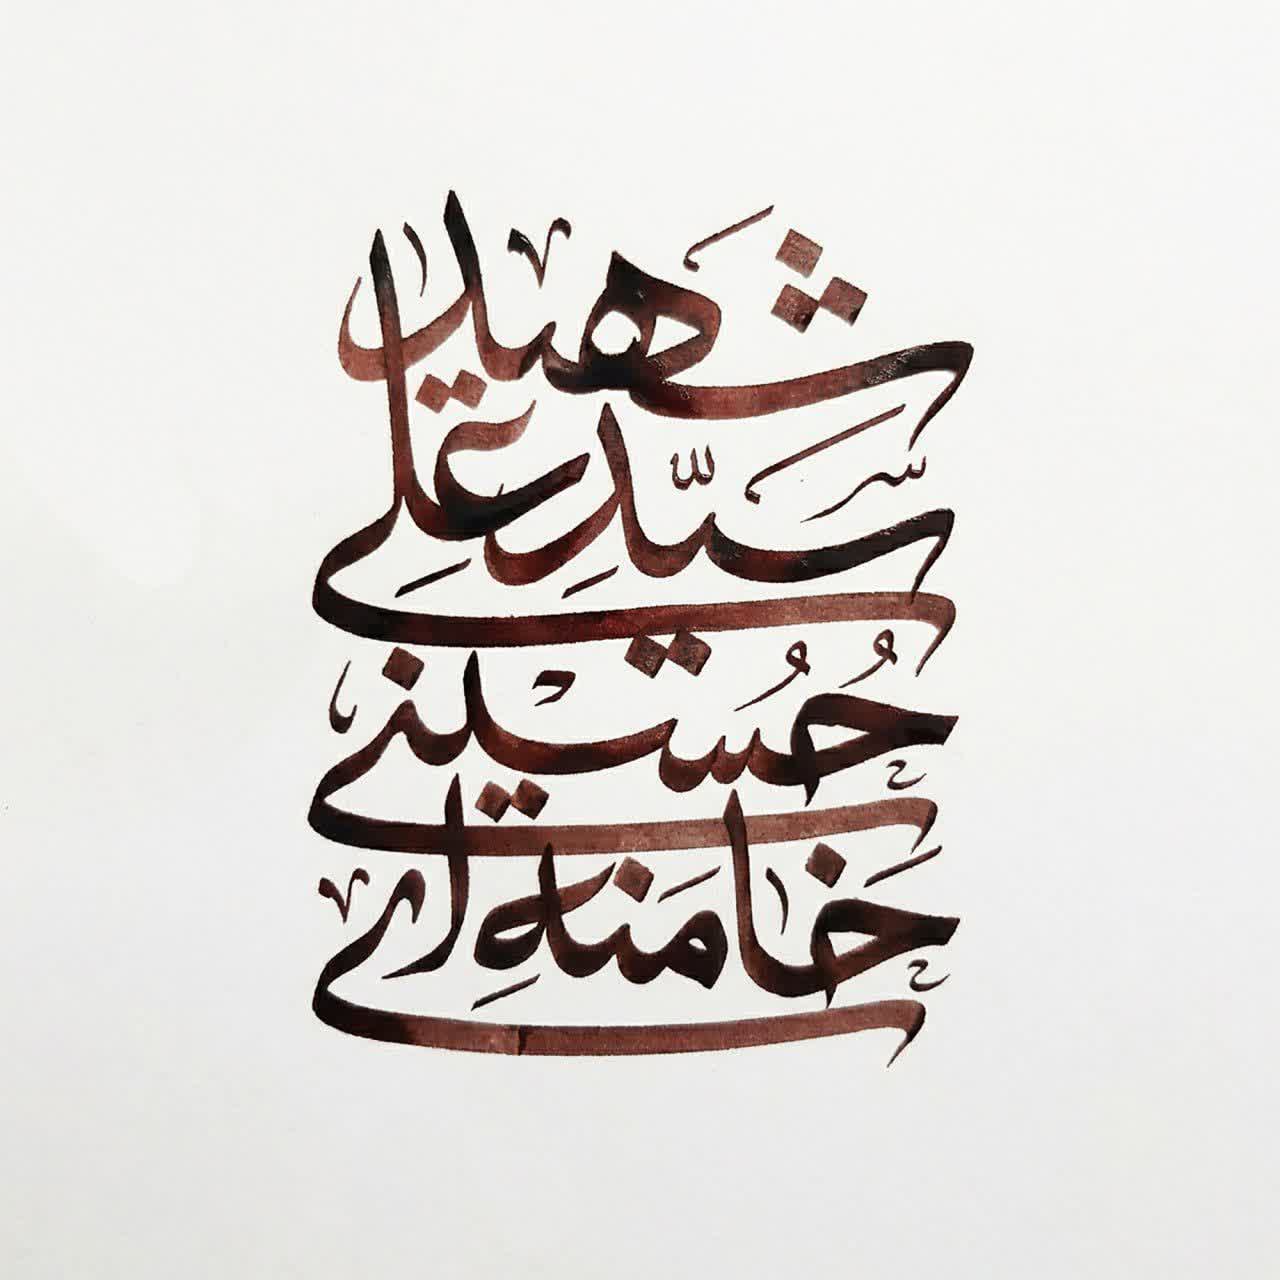 شهید
سَیِّدِ عَلی
حُسَینی
خامَنِه‌ای